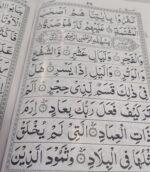 كَفَرُوا بِاٰيٰتِنَا هُمْ اَصْحٰبُ
الْمَشْـَٔمَةِ عَلَيْهِمْ نَارٌ مُّؤْصَدَةٌ
وَالْفَجْرِ وَلَيَالٍ عَشْرٍ وَّالشَّفْعِ
وَالْوَتْرِ وَالَّيْلِ اِذَا يَسْرِ هَلْ
فِيْ ذٰلِكَ قَسَمٌ لِّذِيْ حِجْرٍ اَلَمْ
تَرَ كَيْفَ فَعَلَ رَبُّكَ بِعَادٍ اِرَمَ
ذَاتِ الْعِمَادِ الَّتِيْ لَمْ يُخْلَقْ
مِثْلُهَا فِي الْبِلَادِ وَثَمُوْدَ الَّذِيْنَ